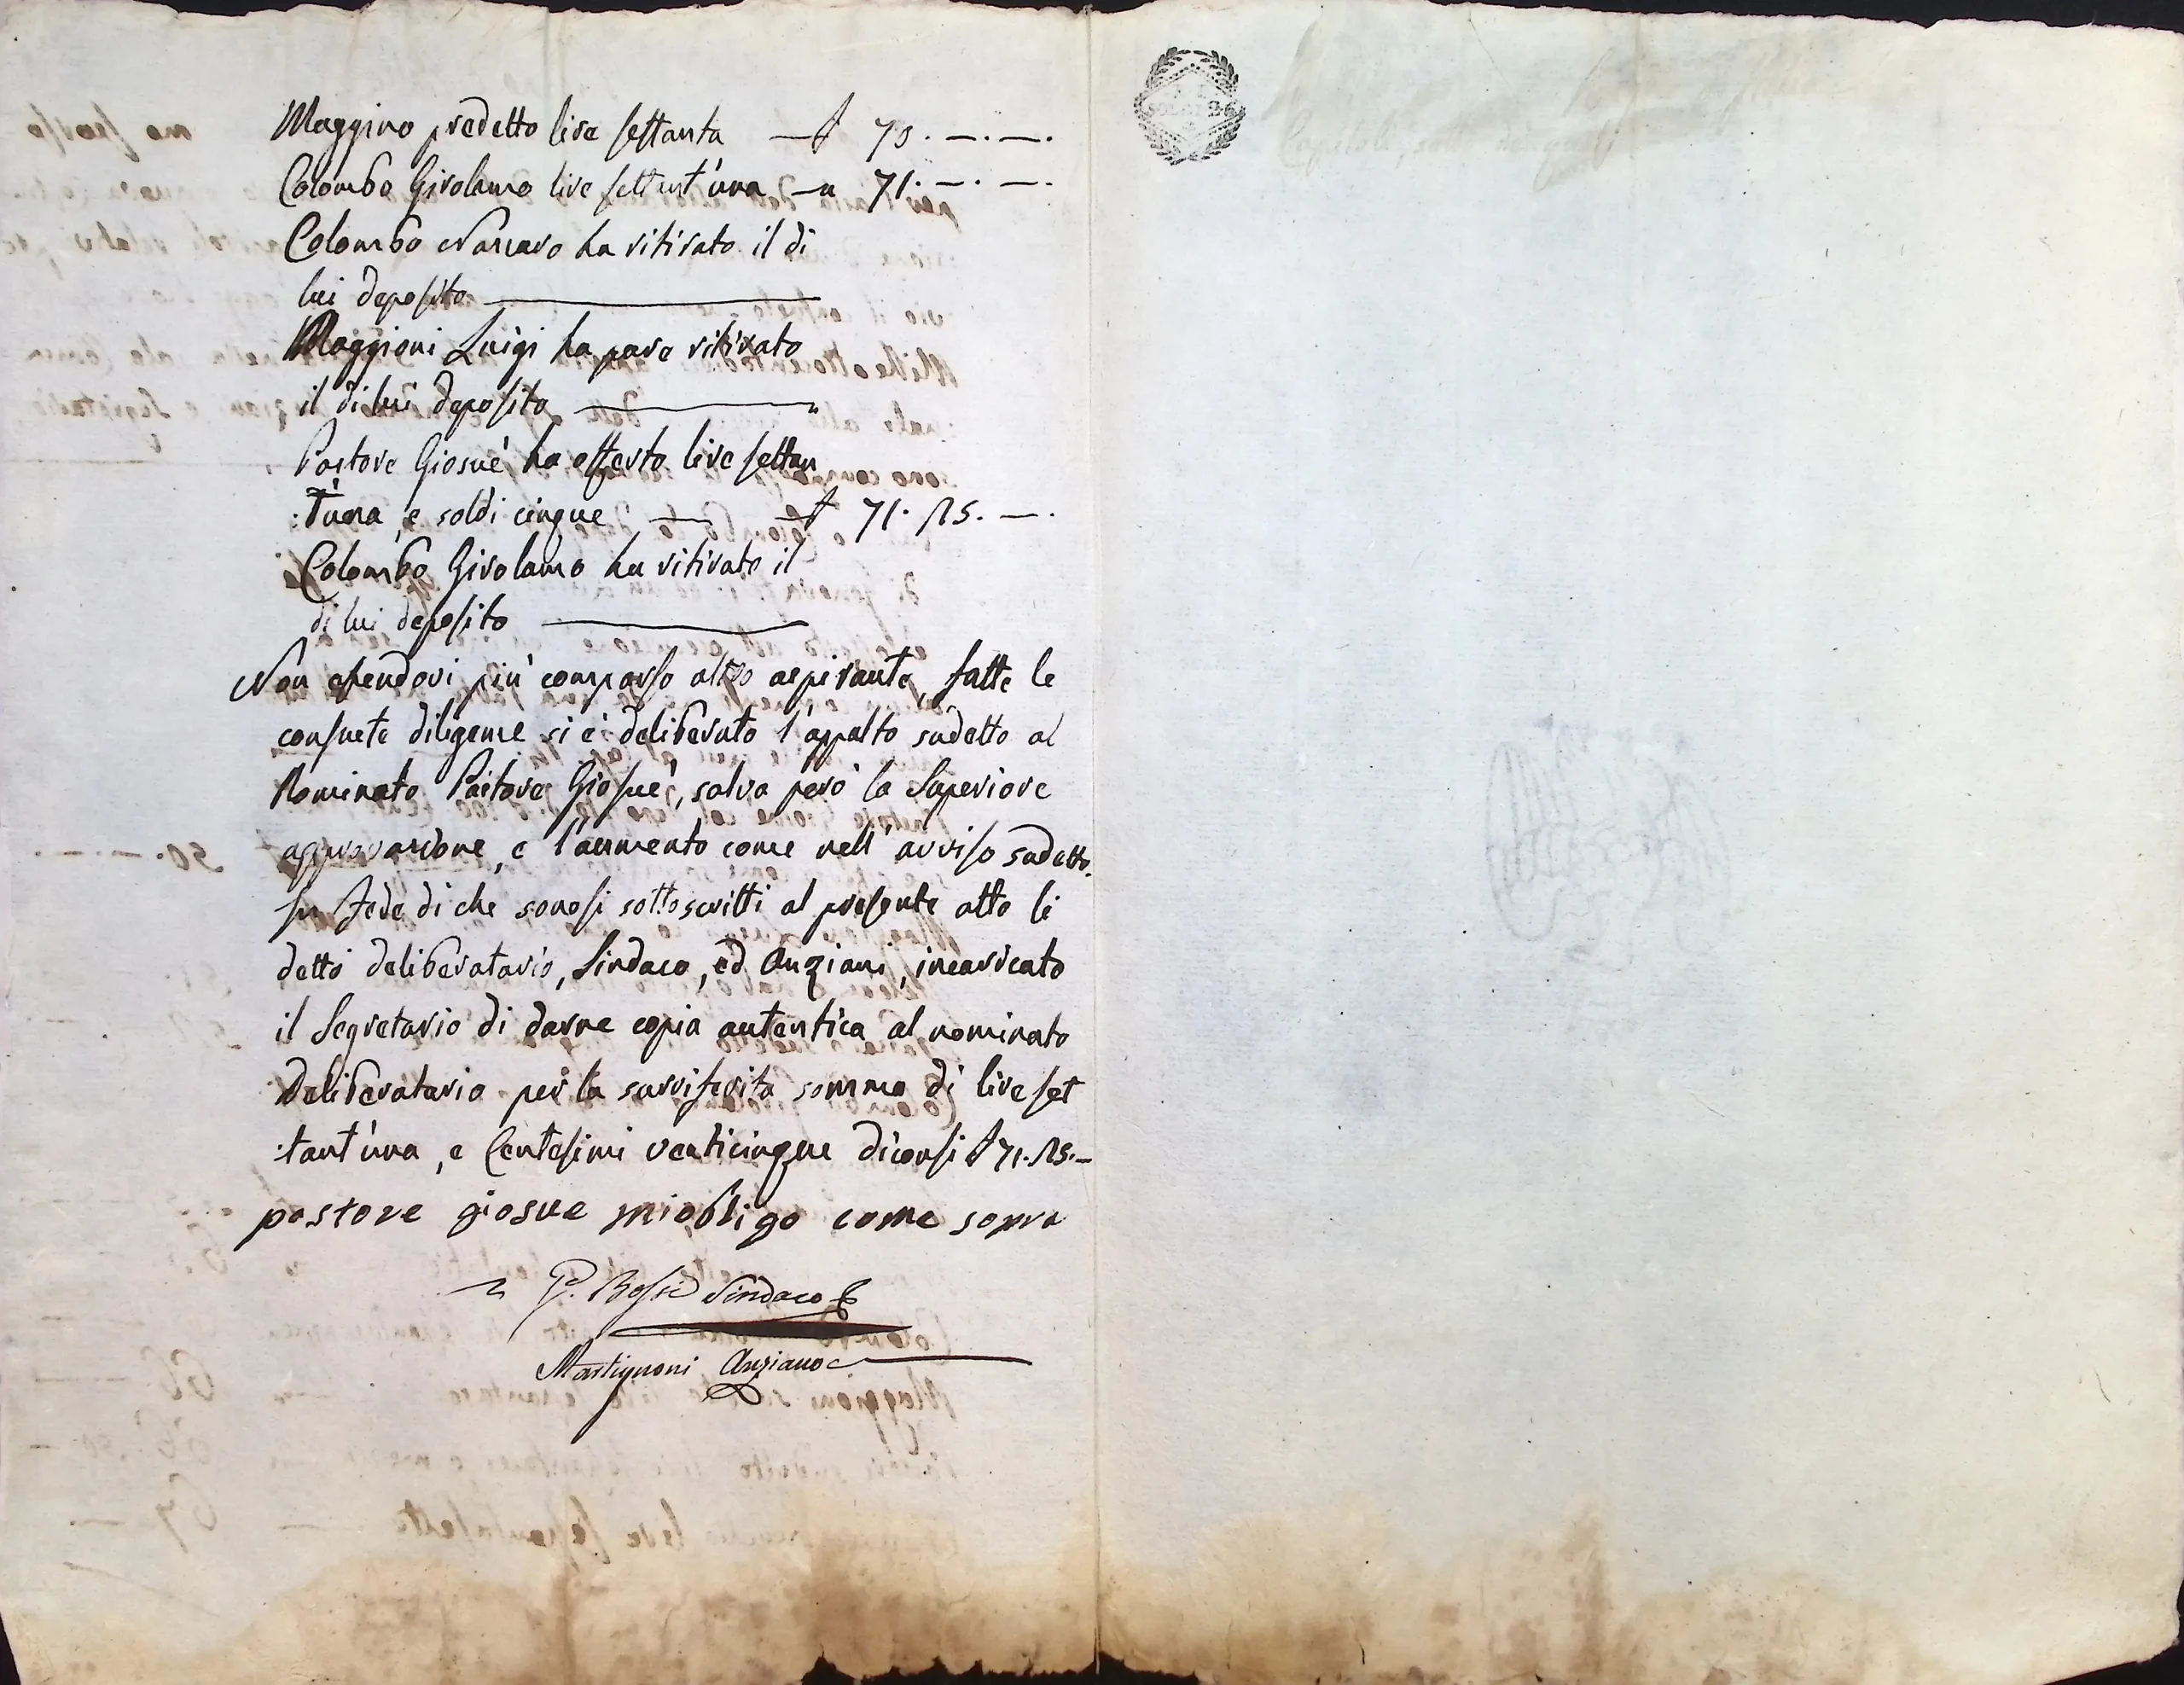 Maggino predetto lire settanta — £ 70. —. —.
Colombo Girolamo lire settant'una — " 71. —. —.
Colombo Nazzaro ha ritirato il di
lui deposito
Maggioni Luigi ha pure ritirato
il di lui deposito "
Pastore Giosuè ha offerto lire settan
:t'una, e soldi cinque — £ 71. 25. —.
Colombo Girolamo ha ritirato il
di lui deposito
Non essendovi più comparso altro aspirante, fatte le
consuete diligenze si è deliberato l'appalto sudetto al
Nominato Pastore Giosuè, salva però la Superiore
approvazione, e l'aumento come nell'avviso sudetto.
In fede di che sonosi sottoscritti al presente atto li
detti deliberatario, Sindaco, ed Anziani, incaricato
il Segretario di darne copia autentica al nominato
Deliberatario per la surriferita somma di lire set
:tant'una, e Centesimi venticinque diconsi £ 71. 25. —
pastore giosue mi obligo come sopra
P. Bossi Sindaco
Martignoni Anziano